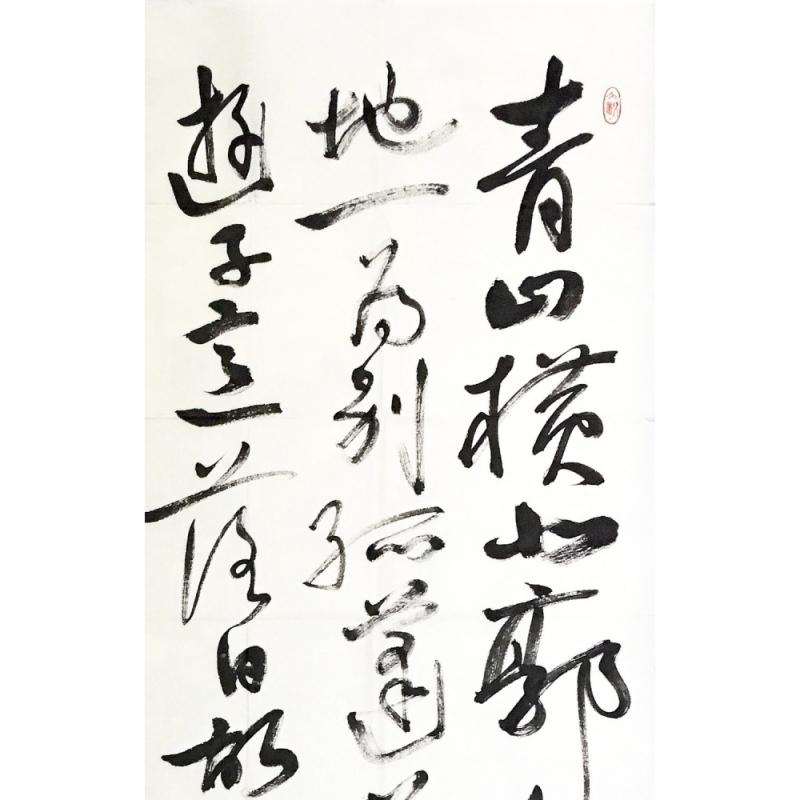 青山橫北郭
地一為別孤蓬
遊子意落日故